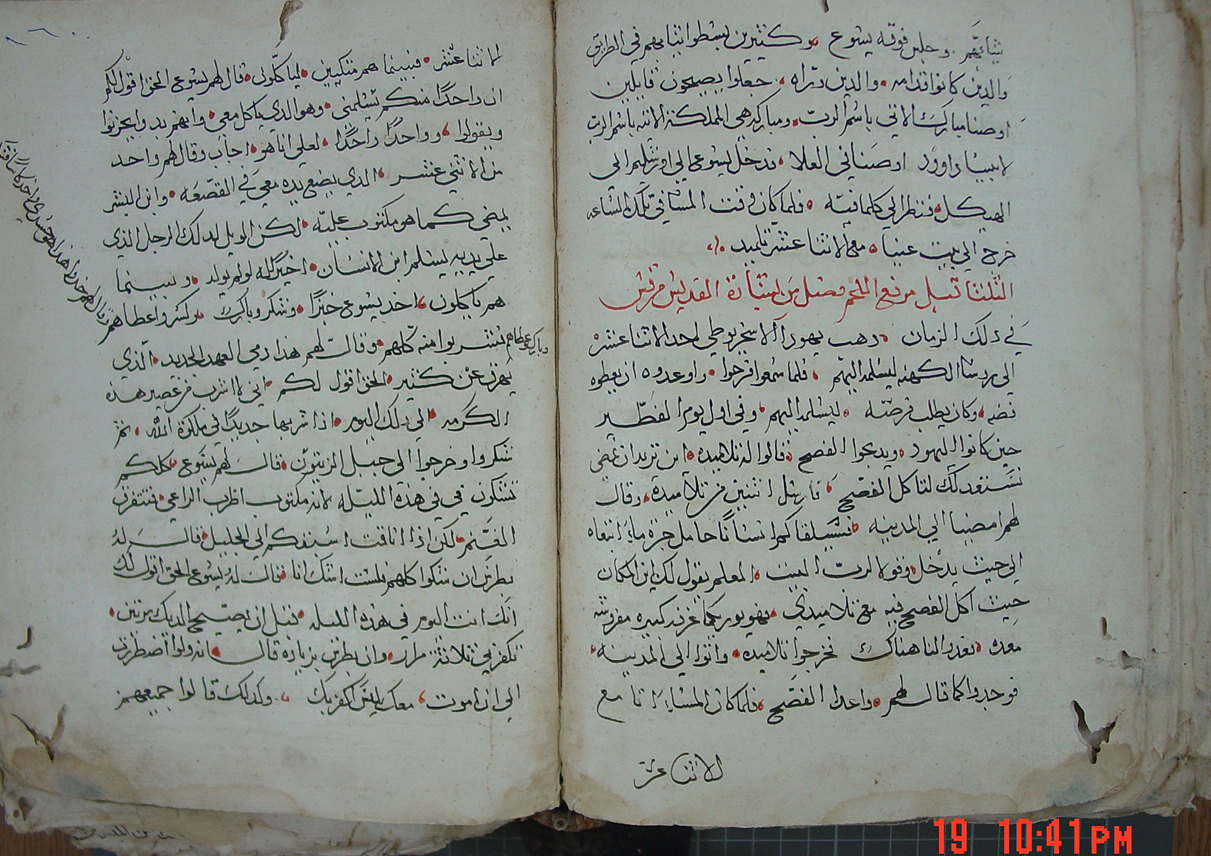 ثيابهم. وجلس فوقه يسوع وكثيرين بسطوا ثيابهم في الطريق
والدين كانوا قدامه والدين وراه جعلوا يصيحون قايلين
اوصنا مبارك الاتي باسم الرب ومباركه هي المملكة الاتيه باسم الرب
لابينا داوود اوصنا في العلا فدخل يسوع الي اورشليم الي
الهيكل فنظر الي كلما فيه فلما كان وقت المسا في تلك الساعه
خرج الي بيت عنيا مع الاثنا عشر تلميد
الثلثا قبل مرفع اللحم فصل من بشارة القديس مرقس
في دلك الزمان دهب يهودا الاسخريوطي احد الاثنا عشر
الي روسا الكهنه ليسلمه اليهم فلما سمعوا فرحوا واوعدوه ان يعطوه
فضه وكان يطلب فرصه ليسلمه اليهم وفي اول يوم الفطير
حين كانوا اليهود ويدبحوا الفصح قالوا له تلاميده اين تريد ان نمضي
نستعد لك لتاكل الفصح فارسل اثنين من تلاميده وقال
لهم امضيا الي المدينه فسيلقاكما انسانا حامل جرة ماء اتبعاه
الي حيث يدخل وقولا لرب البيت المعلم يقول لك اين المكان
حيث اكل الفصح فيه مع تلاميدي فهو يوريكما غرفه كبيره مفروشه
معده فعدوا لنا هناك فخرجوا تلاميده واتوا الي المدينه
فوجدوا كما قال لهم واعدا الفصح فلما كان المسا اتا مع
الاثنا عشر
لاثنا عشر فبينما هم متكيين لياكلون قال لهم يسوع الحق اقول لكم
ان واحدا منكم يسلمني وهو الدي ياكل معي وانهم بدوا يحزنوا
ويقولوا وواحدا واحدا لعلي انا هو اجاب وقال لهم واحد
من الاثني عشر الدي يضع يده معي في القصعه وابن البشر
يمضي كما هو مكتوب عليه لكن الويل لدلك الرجل الدي
علي يديه يسلم ابن الانسان اخير له لو لم يولد وبينما
هم ياكلون اخد يسوع خبزا وشكر وبارك وكسر واعطاهم
وبارك واعطاهم
فشربوا منه كلهم وقال لهم هدا دمي العهد الجديد الدي
يهرق عن كثير الحق اقول لكم اني لا اشرب من عصير هده
الكرمه الي دلك اليوم ادا شربها جديدا في ملكوة الله ثم
شكروا وخرجوا الي جبل الزيتون قال لهم يسوع كلكم
تشكون في في هده الليله لانه مكتوب اظرب الراعي فتتفرق
الغنم لكن ادا انا قمت اسبقكم الي الجليل قال له
بطرس ان شكوا كلهم لست اشك انا قال له يسوع الحق اقول لك
انك انت اليوم في هده الليله قبل ان يصيح الديك مرتين
تكفر بي ثلاثة مرار وان بطرس بزياده قال انه ولوا اضطررت
الي ان اموت معك ليس اكفر بك وكدلك قالوا جميعهم
19 10:41PM